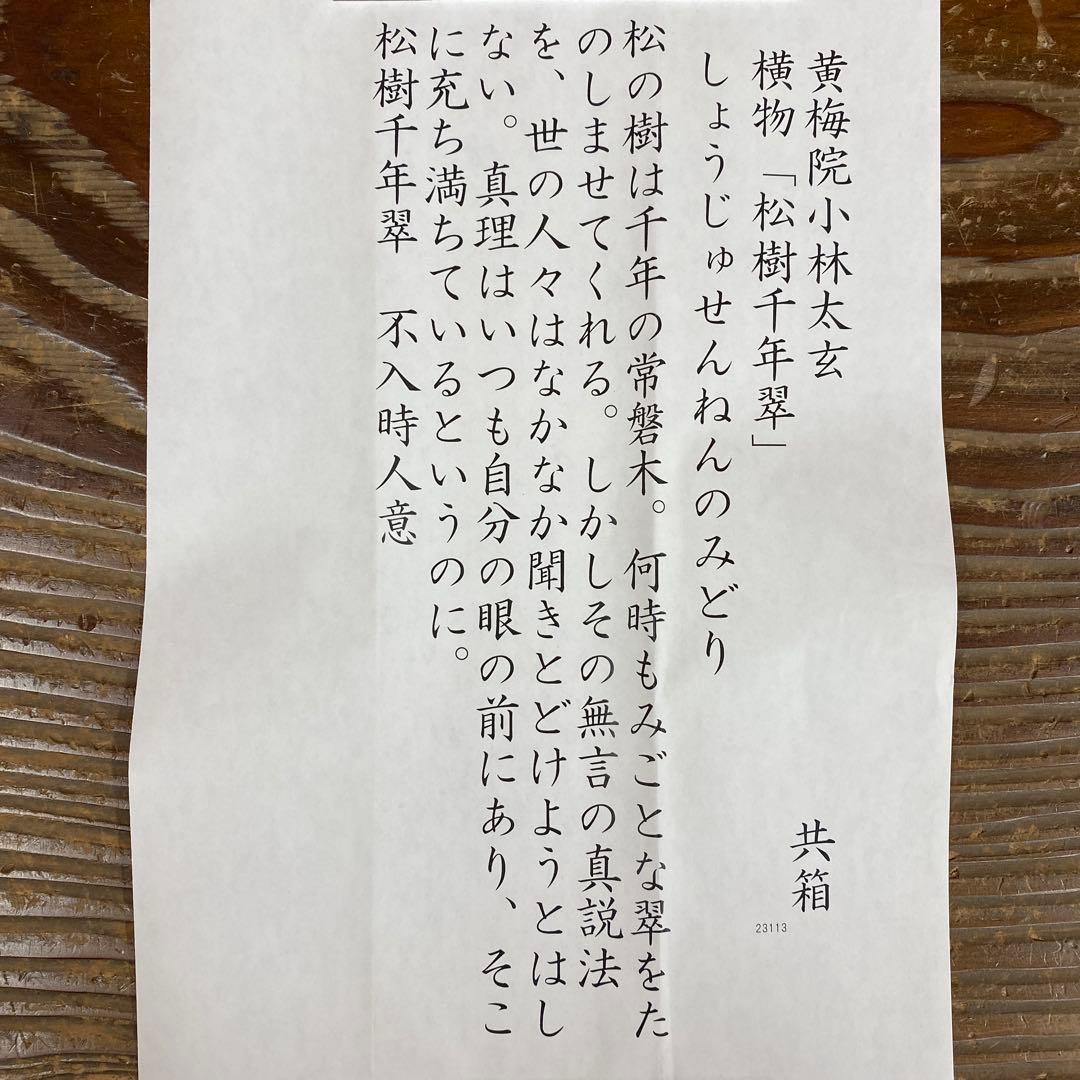 黄梅院小林太玄
共箱
23113
横物「松樹千年翠」
しょうじゅせんねんのみどり
松の樹は千年の常磐木。何時もみごとな翠をた
のしませてくれる。しかしその無言の真説法
を、世の人々はなかなか聞きとどけようとはし
ない。真理はいつも自分の眼の前にあり、そこ
に充ち満ちているというのに。
松樹千年翠　不入時人意